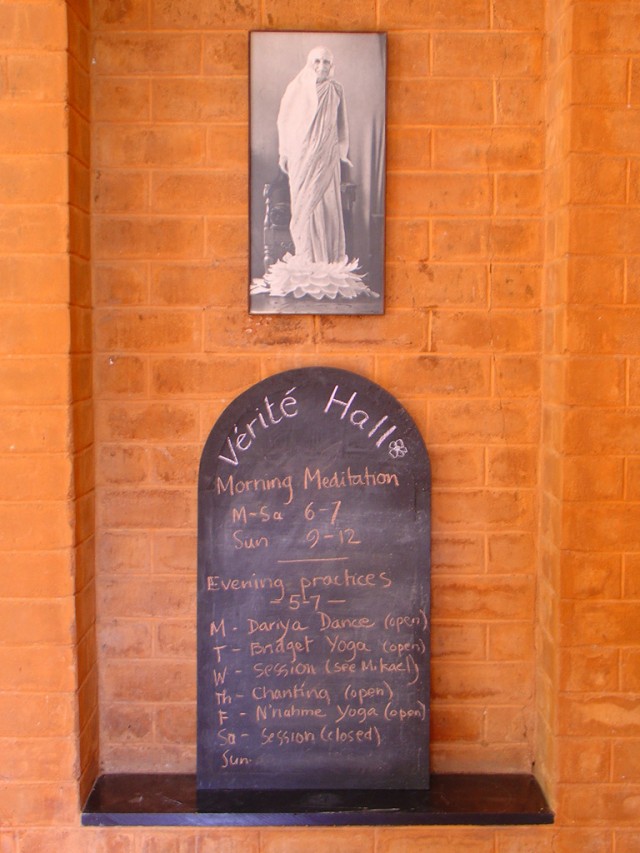 Vérité Hall
Morning Meditation
M-Sa 6-7
Sun 9-12
Evening practices
- 5-7 -
M - Dariya Dance (open)
T - Bridget Yoga (open)
W - Session (see Mikael)
Th - Chanting (open)
F - N'nahme Yoga (open)
Sa - Session (closed)
Sun